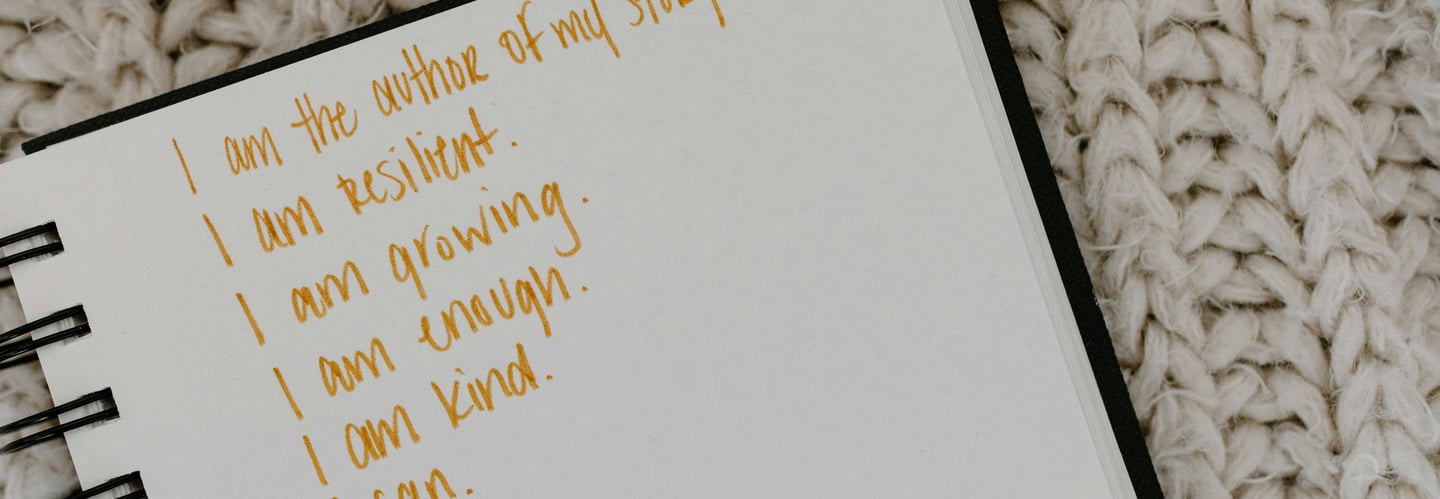 I am the author of my story
I am resilient.
I am growing.
I am enough.
I am kind.
I can.